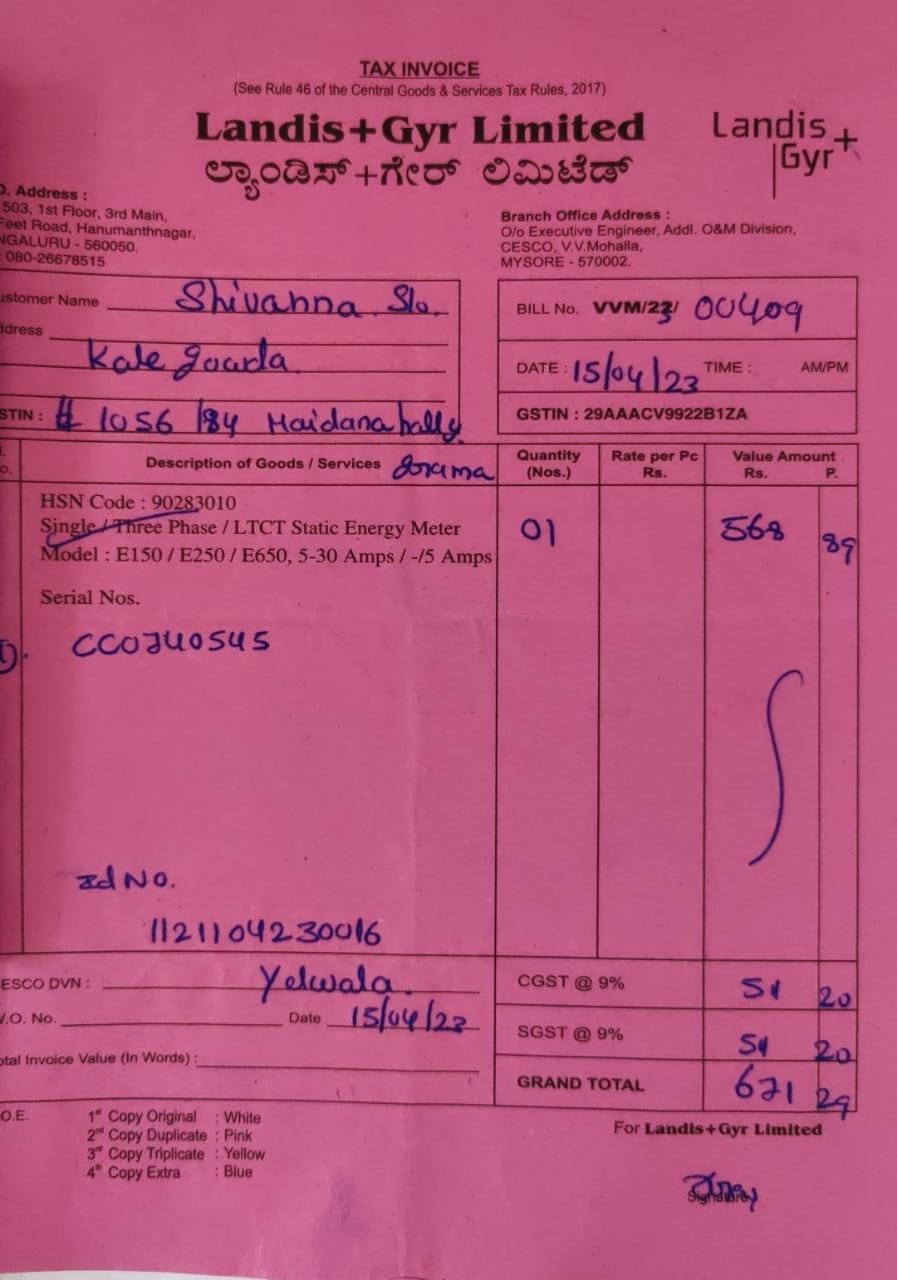 TAX INVOICE
(See Rule 46 of the Central Goods & Services Tax Rules, 2017)
Landis+Gyr Limited
ಲ್ಯಾಂಡಿಸ್+ಗೇರ್ ಲಿಮಿಟೆಡ್
Landis
Gyr+
O. Address :
503, 1st Floor, 3rd Main,
Feet Road, Hanumanthnagar,
NGALURU - 560050.
080-26678515
Branch Office Address :
O/o Executive Engineer, Addl. O&M Division,
CESCO, V.V.Mohalla,
MYSORE - 570002.
ustomer Name Shivanna S/o.
ddress
Kale gowda
STIN : # 1056 /84 Maidanahally
BILL No. VVM/23/ 00409
DATE : 15/04/23 TIME : AM/PM
GSTIN : 29AAACV9922B1ZA
Description of Goods / Services
Quantity (Nos.)
Rate per Pc Rs.
Value Amount Rs. P.
HSN Code : 90283010
Single / Three Phase / LTCT Static Energy Meter 01 568 89
Model : E150 / E250 / E650, 5-30 Amps / -/5 Amps
Serial Nos.
1). CC0740545
Id NO.
1121104230016
ESCO DVN : Yelwala.
.O. No. Date 15/04/23
otal Invoice Value (In Words) :
CGST @ 9% 51 20
SGST @ 9% 51 20
GRAND TOTAL 671 29
.O.E.
1st Copy Original : White
2nd Copy Duplicate : Pink
3rd Copy Triplicate : Yellow
4th Copy Extra : Blue
For Landis+Gyr Limited
Signature